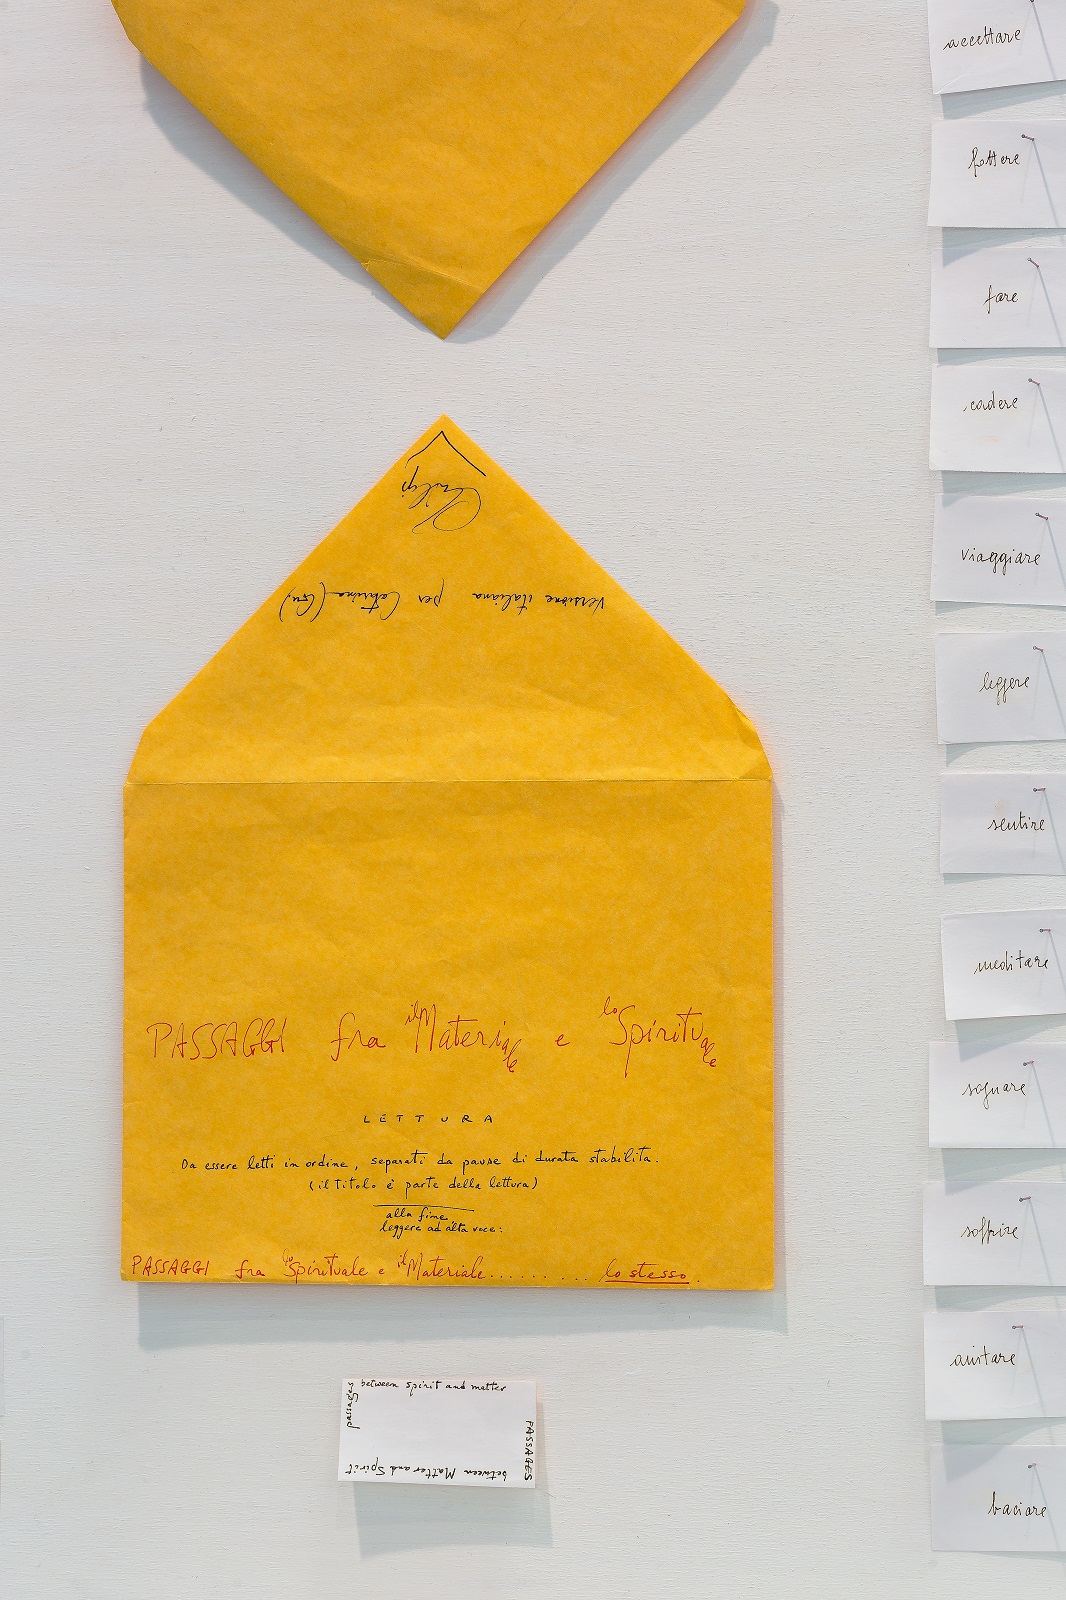 versione italiana per Caterina (Gu.)
PASSAGGI fra il Materiale e lo Spirituale
LETTURA
Da essere letti in ordine, separati da pause di durata stabilita.
(il titolo è parte della lettura)
alla fine
leggere ad alta voce:
PASSAGGI fra lo Spirituale e il Materiale.......... lo stesso.
passages
between spirit and matter
PASSAGES
between Matter and Spirit
accettare
fottere
fare
cadere
viaggiare
leggere
sentire
meditare
sognare
soffrire
aiutare
baciare